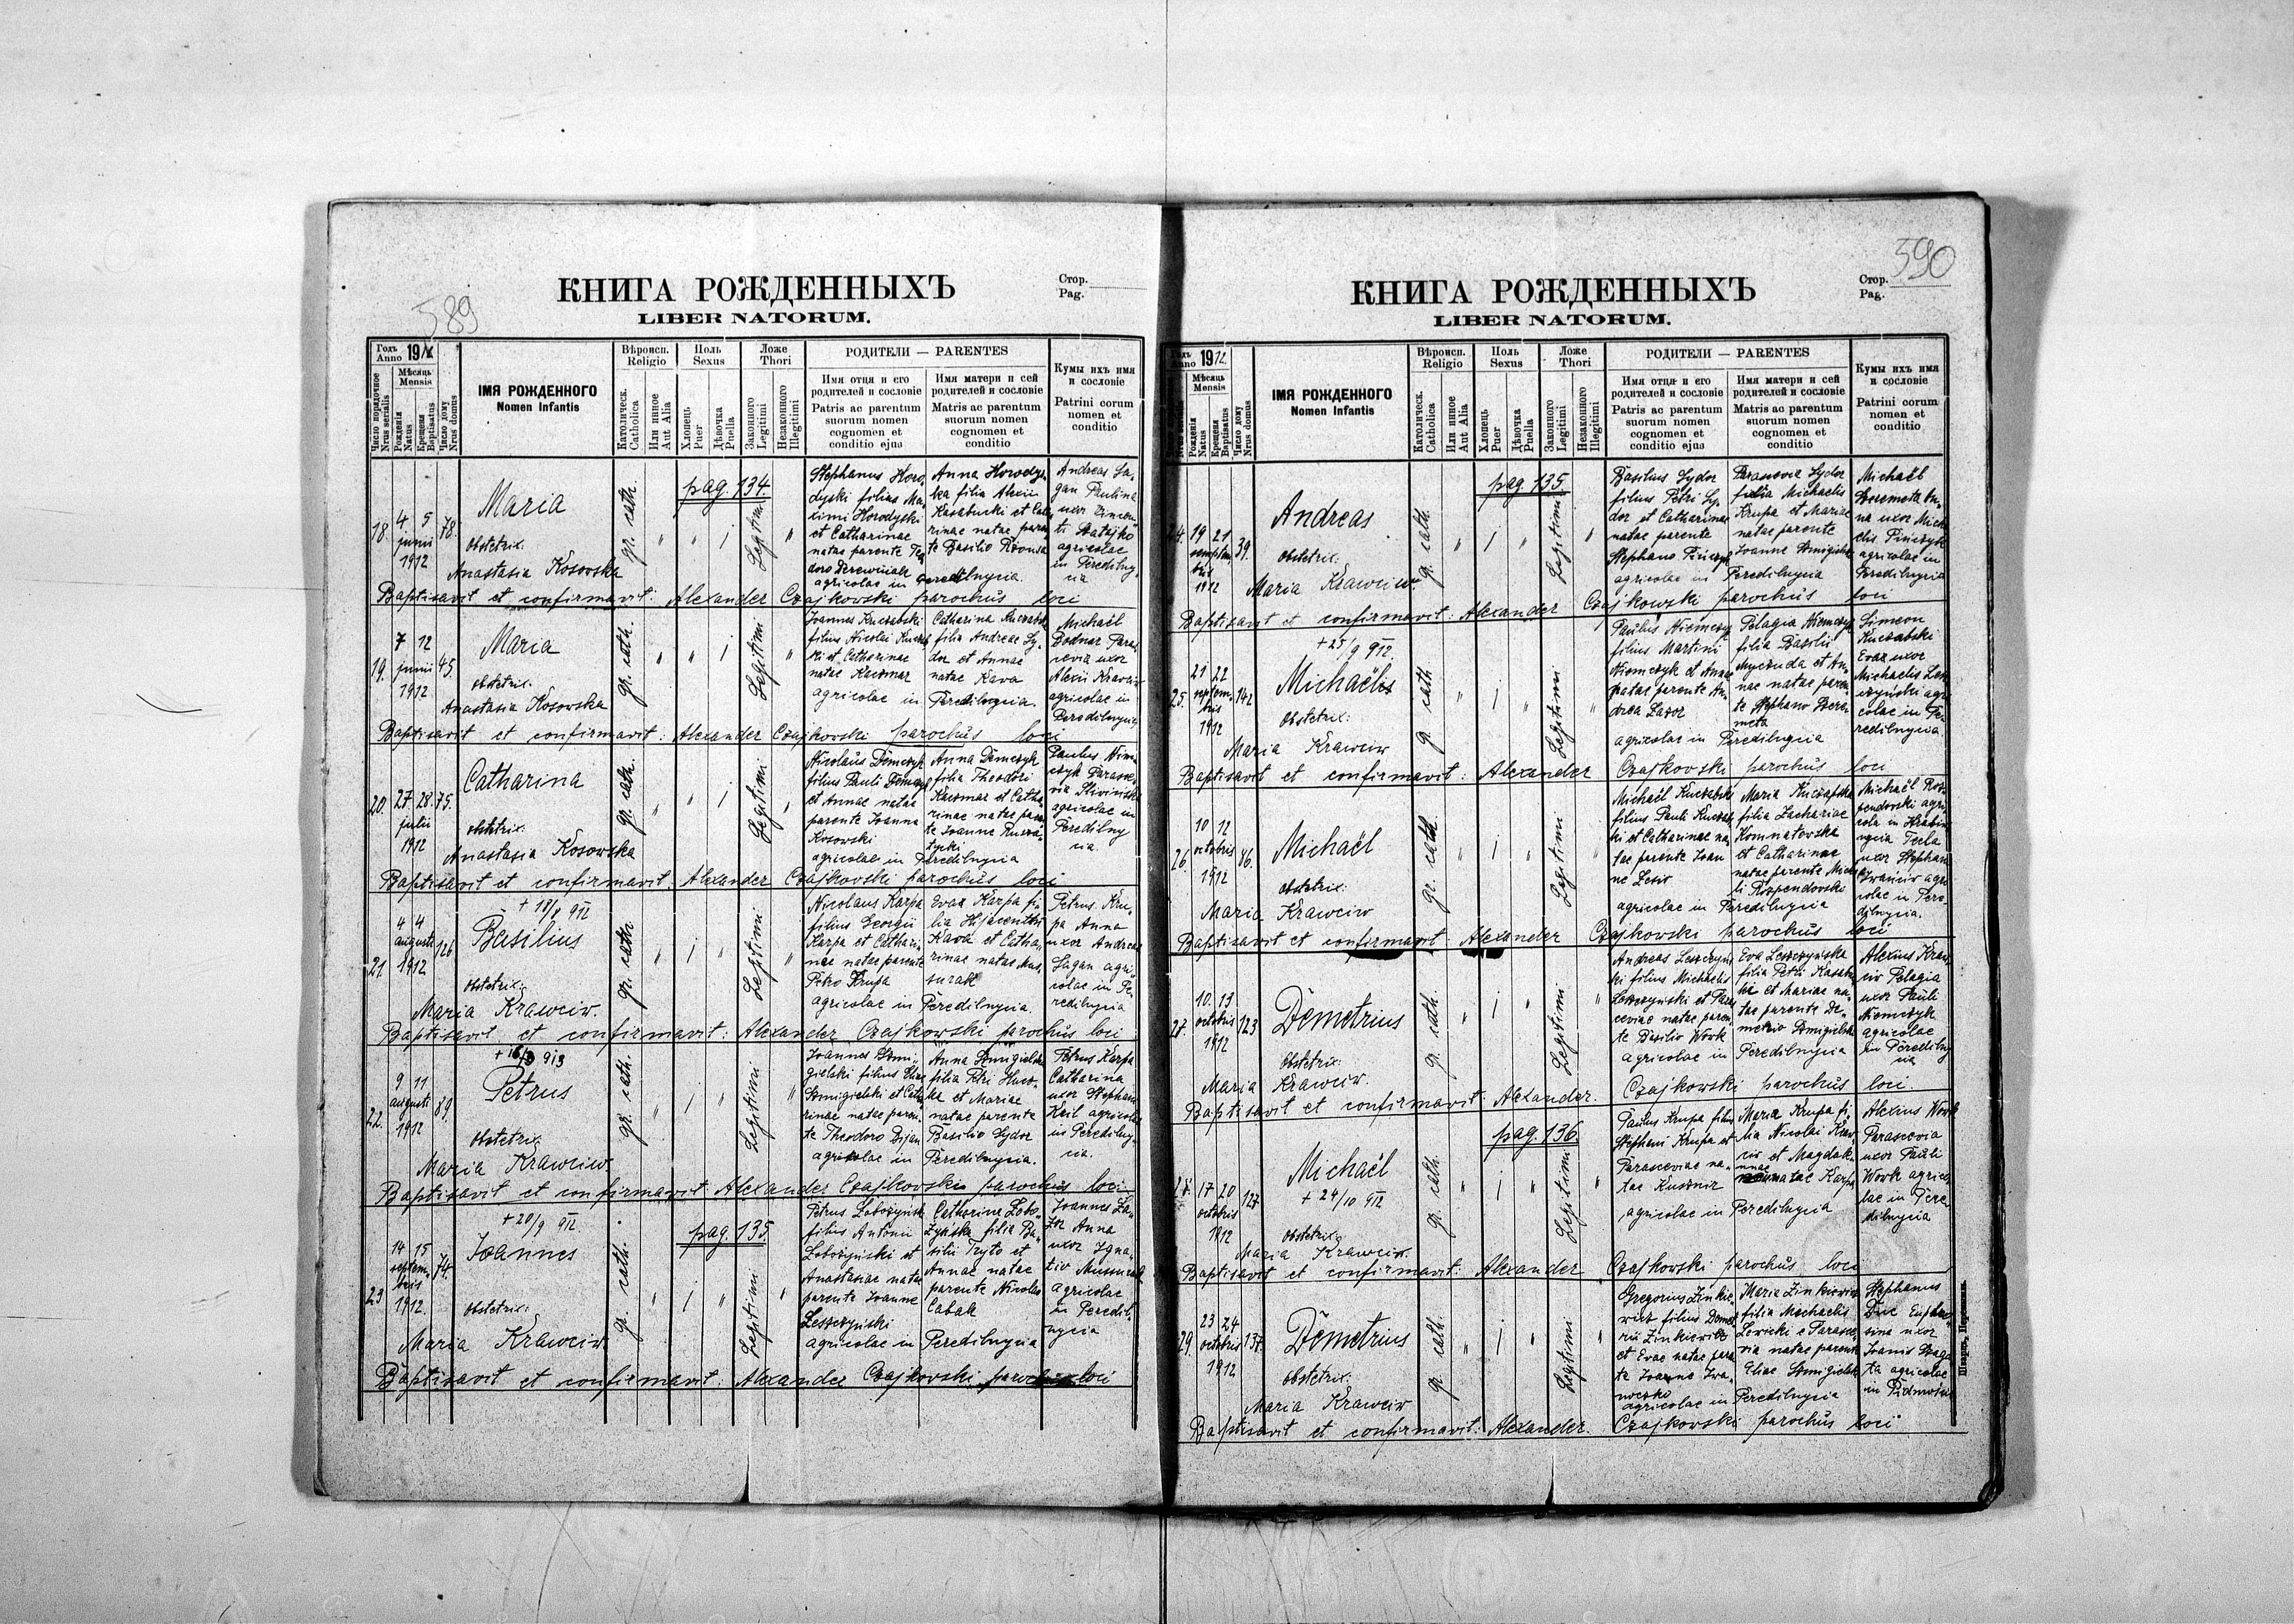 КНИГА РОЖДЕННЫХЪ
LIBER NATORUM.
Стор.
Pag.
589
Годъ
Anno 1912
Мѣсяць
Mensis
Число порядочное
Nrus serialis
Рожденія
Natus
Крещенія
Baptisatus
Число дому
Nrus domus
ІМЯ РОЖДЕННОГО
Nomen Infantis
Вѣроисп.
Religio
Католическ.
Catholica
Или инное
Aut Alia
Поль
Sexus
Хлопець
Puer
Дѣвочка
Puella
Ложе
Thori
Законного
Legitimi
Незаконного
Illegitimi
РОДИТЕЛИ — PARENTES
Имя отця и его
родителей и сословіе
Patris ac parentum
suorum nomen
cognomen et
conditio ejus
Имя матери и сей
родителей и сословіе
Matris ac parentum
suorum nomen
cognomen et
conditio
Кумы ихъ имя
и сословіе
Patrini eorum
nomen et
conditio
18. 4 5 junii 1912 78.
Maria
obstetrix:
Anastasia Kosowska
gr. cath.
pag. 134.
" " 1 Legitimi "
Stephanus Horo-
dyski filius Ma-
ximi Horodyski
et Catharinae
natae parente Teo
doro Derewianko
agricolae in Peredilnycia.
Anna Horodys
ka filia Alexii
Kasabucki et Catha
rinae natae paren
te Basilio
Andreas Sa-
gan Paulina
uxor Vincen
ti
agricolae
in Peredilny-
cia
Baptisavit et confirmavit: Alexander Czajkowski parochus loci
19. 7 12 junii 1912 45.
Maria
obstetrix:
Anastasia Kosowska
gr. cath.
" " 1 Legitimi "
Joannes Kuczabski
filius Nicolai Kuczab
ski et Catharinae
natae Kaczmar
agricolae in Peredilnycia.
Catharina Kuczabska
filia Andreae Sy-
dor et Annae
natae Kava
Michaël
Bodnar Paras
cevia uxor
Alexii Krawciw
agricolae in
Peredilnycia
Baptisavit et confirmavit: Alexander Czajkowski parochus loci
20. 27 28 julii 1912 75.
Catharina
obstetrix:
Anastasia Kosowska
gr. cath.
" " 1 Legitimi "
Nicolaus Demczyk
filius Pauli Demczyk
et Annae natae
parente Joanna
Kosowski
agricolae in Peredilnycia
Anna Demczyk
filia Theodori
Kaczmar et Catha-
rinae natae paren
te Joanne
Paulus Niem
czyk Parasce-
via
agricolae in
Peredilny
cia.
Baptisavit et confirmavit: Alexander Czajkowski parochus loci
21 4 4 augusti 1912 126
+ 18/8 912
Basilius
obstetrix:
Maria Krawciw.
gr. cath.
" 1 " Legitimi "
Nicolaus Karpa
filius Georgii
Karpa et Cathari-
nae natae parente
Petro Krupa
agricolae in Peredilnycia.
Evae Karpa fi-
lia Hyacenthi
Kava et Catha-
rinae natae Mus,
surak
Petrus Kru-
pa Anna
uxor Andreae
Sagan agri-
colae in Pe-
redilnycia
Baptisavit et confirmavit: Alexander Czajkowski parochus loci
22. 9 11 augusti 1912 89.
Petrus
obstetrix
Maria Krawciw.
gr. cath.
" 1 " Legitimi "
Joannes Szmi-
gielski filius Eliae
Szmigielski et Catha
rinae natae paren-
te Theodoro Dijan
agricolae in Peredilnycia.
Anna Szmigielska
filia Petri
et Mariae
natae parente
Basilio Sydor
Petrus Karpa
Catharina
uxor Stephani
agricolae
in Peredilny-
cia.
Baptisavit et confirmavit: Alexander Czajkowski parochus loci
23 14 15 septem-
bris 1912. 74.
+ 20/9 912
Joannes
obstetrix:
Maria Krawciw.
gr. cath.
pag. 135.
" 1 " Legitimi "
Petrus Lobozynski
filius Antonii
Lobozynski et
Anastasiae natae
parente Joanne
Leszczyński
agricolae in Peredilnycia
Catharina Lobo-
zynska filia Ba-
silii Tryto et
Annae natae
parente Nicolao
Cabak
Joannes La-
zor Anna
uxor Igna-
tio Mussurak
agricolae
in Peredil-
nycia
Baptisavit et confirmavit: Alexander Czajkowski parochus loci
КНИГА РОЖДЕННЫХЪ
LIBER NATORUM.
Стор.
Pag.
590
Годъ
Anno 1912.
Мѣсяць
Mensis
Рожденія
Natus
Крещенія
Baptisatus
Число дому
Nrus domus
ІМЯ РОЖДЕННОГО
Nomen Infantis
Вѣроисп.
Religio
Католическ.
Catholica
Или инное
Aut Alia
Поль
Sexus
Хлопець
Puer
Дѣвочка
Puella
Ложе
Thori
Законного
Legitimi
Незаконного
Illegitimi
РОДИТЕЛИ — PARENTES
Имя отця и его
родителей и сословіе
Patris ac parentum
suorum nomen
cognomen et
conditio ejus
Имя матери и сей
родителей и сословіе
Matris ac parentum
suorum nomen
cognomen et
conditio
Кумы ихъ имя
и сословіе
Patrini eorum
nomen et
conditio
24. 19 21 septem-
bris 1912 39.
Andreas
obstetrix:
Maria Krawciw.
gr. cath.
pag. 135.
" 1 " Legitimi "
Basilius Sydor
filius Petri Sy-
dor et Catharinae
natae parente
Stephano Pinczyk
agricolae in Peredilnycia
Parascevia Sydor
filia Michaelis
Krupa et Mariae
natae parente
Joanne Szmigielski
Michaël
Szeremeta An-
na uxor Micha
elis Pinczyk
agricolae in
Peredilnycia
Baptisavit et confirmavit: Alexander Czajkowski parochus loci
25. 21 22 septem-
bris 1912 142
+ 25/9 912.
Michaëlis
obstetrix:
Maria Krawciw
gr. cath.
" 1 " Legitimi "
Paulus Niemczyk
filius Martini
Niemczyk et Annae
natae parente An-
drea Lazor
agricolae in Peredilnycia
Pelagia Niemczyk
filia Basilii
Myczuda et An-
nae natae paren-
te Stephano Szere-
meta
Simeon
Kuczabski
Evae uxor
Michaelis Lesz
czyński agri
colae in Pe-
redilnycia.
Baptisavit et confirmavit: Alexander Czajkowski parochus loci
26. 10 12 octobris 1912 86.
Michaël
obstetrix:
Maria Krawciw
gr. cath.
" 1 " Legitimi "
Michaël Kuczabski
filius Pauli Kuczab
ski et Catharinae na-
tae parente Joan
ne Lesiw
agricolae in Peredilnycia
Maria Kuczabska
filia Zachariae
Komnatowska
et Catharinae
natae parente Micha
li Rozpendowski
Michaël Roz-
pendowski agri
cola in Hrabin
nycia Tecla
uxor Stephani
Iwańciw agri
colae in Pere-
dilnycia.
Baptisavit et confirmavit: Alexander Czajkowski parochus loci
27. 10. 13 octobris 1912 123
Demetrius
obstetrix:
Maria Krawciw.
gr. cath.
" 1 " Legitimi "
Andreas Leszczyn
ski filius Michaelis
Leszczyński et Paras
ceviae natae paren-
te Basilio Wowk
agricolae in Peredilnycia
Eva Leszczyńska
filia Petri Kasab
ski et Mariae na-
tae parente De-
metrio Szmigielski
Alexius Kraw-
ciw Pelagia
uxor Pauli
Niemczyk
agricolae
in Peredilny
cia
Baptisavit et confirmavit: Alexander. Czajkowski parochus loci.
28. 17 20 octobris 1912 127
Michaël
+ 24/10 912
obstetrix
Maria Krawciw.
gr. cath.
pag. 136.
" 1 " Legitimi "
Paulus Krupa filius
Stephani Krupa et
Parasceviae na-
tae Kusznir
agricolae in Peredilnycia
Maria Krupa fi-
lia Nicolai Kraw-
ciw et Magdale-
nnae natae Karpa
Alexius Wowk
Parascevia
uxor Pauli
Wowk agrico
lae in Pere
dilnycia
Baptisavit et confirmavit: Alexander Czajkowski parochus loci
29. 23 24 octobris 1912 137.
Demetrius
obstetrix:
Maria Krawciw
gr. cath.
" 1 " Legitimi "
Gregorius Zinkie-
wicz filius Deme
trii Zinkiewicz
et Evae natae paren
te Joanne Iwa-
noczko
agricolae in Peredilnycia
Maria Zinkiewicz
filia Michaelis
Lewicki e Parasce-
via natae parente
Eliae Szmigielski
Stephanus
Duc Euphro-
sina uxor
Joanis
agricolae
in
Baptisavit et confirmavit: Alexander. Czajkowski parochus loci